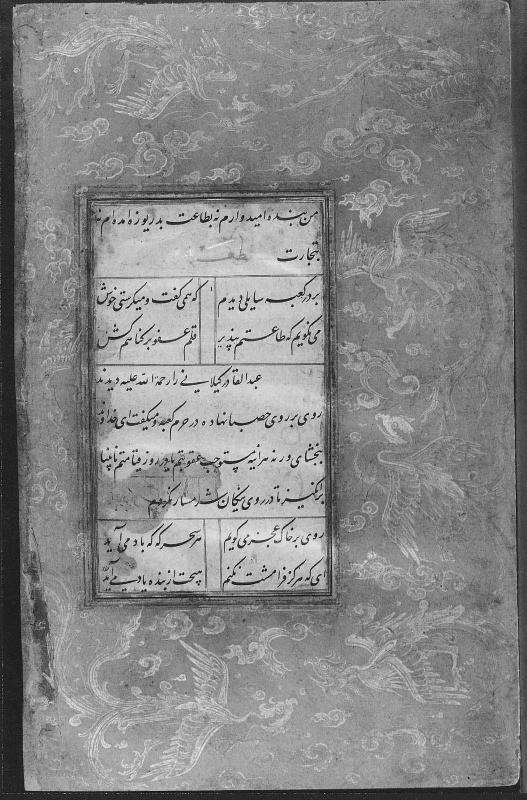 من بنده امیدوارم نه بطاعت بدریوزه آمده‌ام نه
بتجارت
بر در کعبه سایلی دیدم که همی گفت و میکرستی خوش
می نگویم که طاعتم بپذیر قلم عفو بر گناهم کش
عبدالقادر کیلانی را رحمة الله علیه دیدند
روی بر روی حصبا نهاده در حرم کعبه و میگفت ای خداوند
ببخشای ور نه هراینه مستوجب عقوبتم باری در روز قیامتم نابینا
برانگیز تا در روی نیکان شرمسار نشوم
روی بر خاک عجز می گویم هر سحر که که باد می آید
ای که هرگز فرامشت نکنم هیچت از بنده یاد می آید